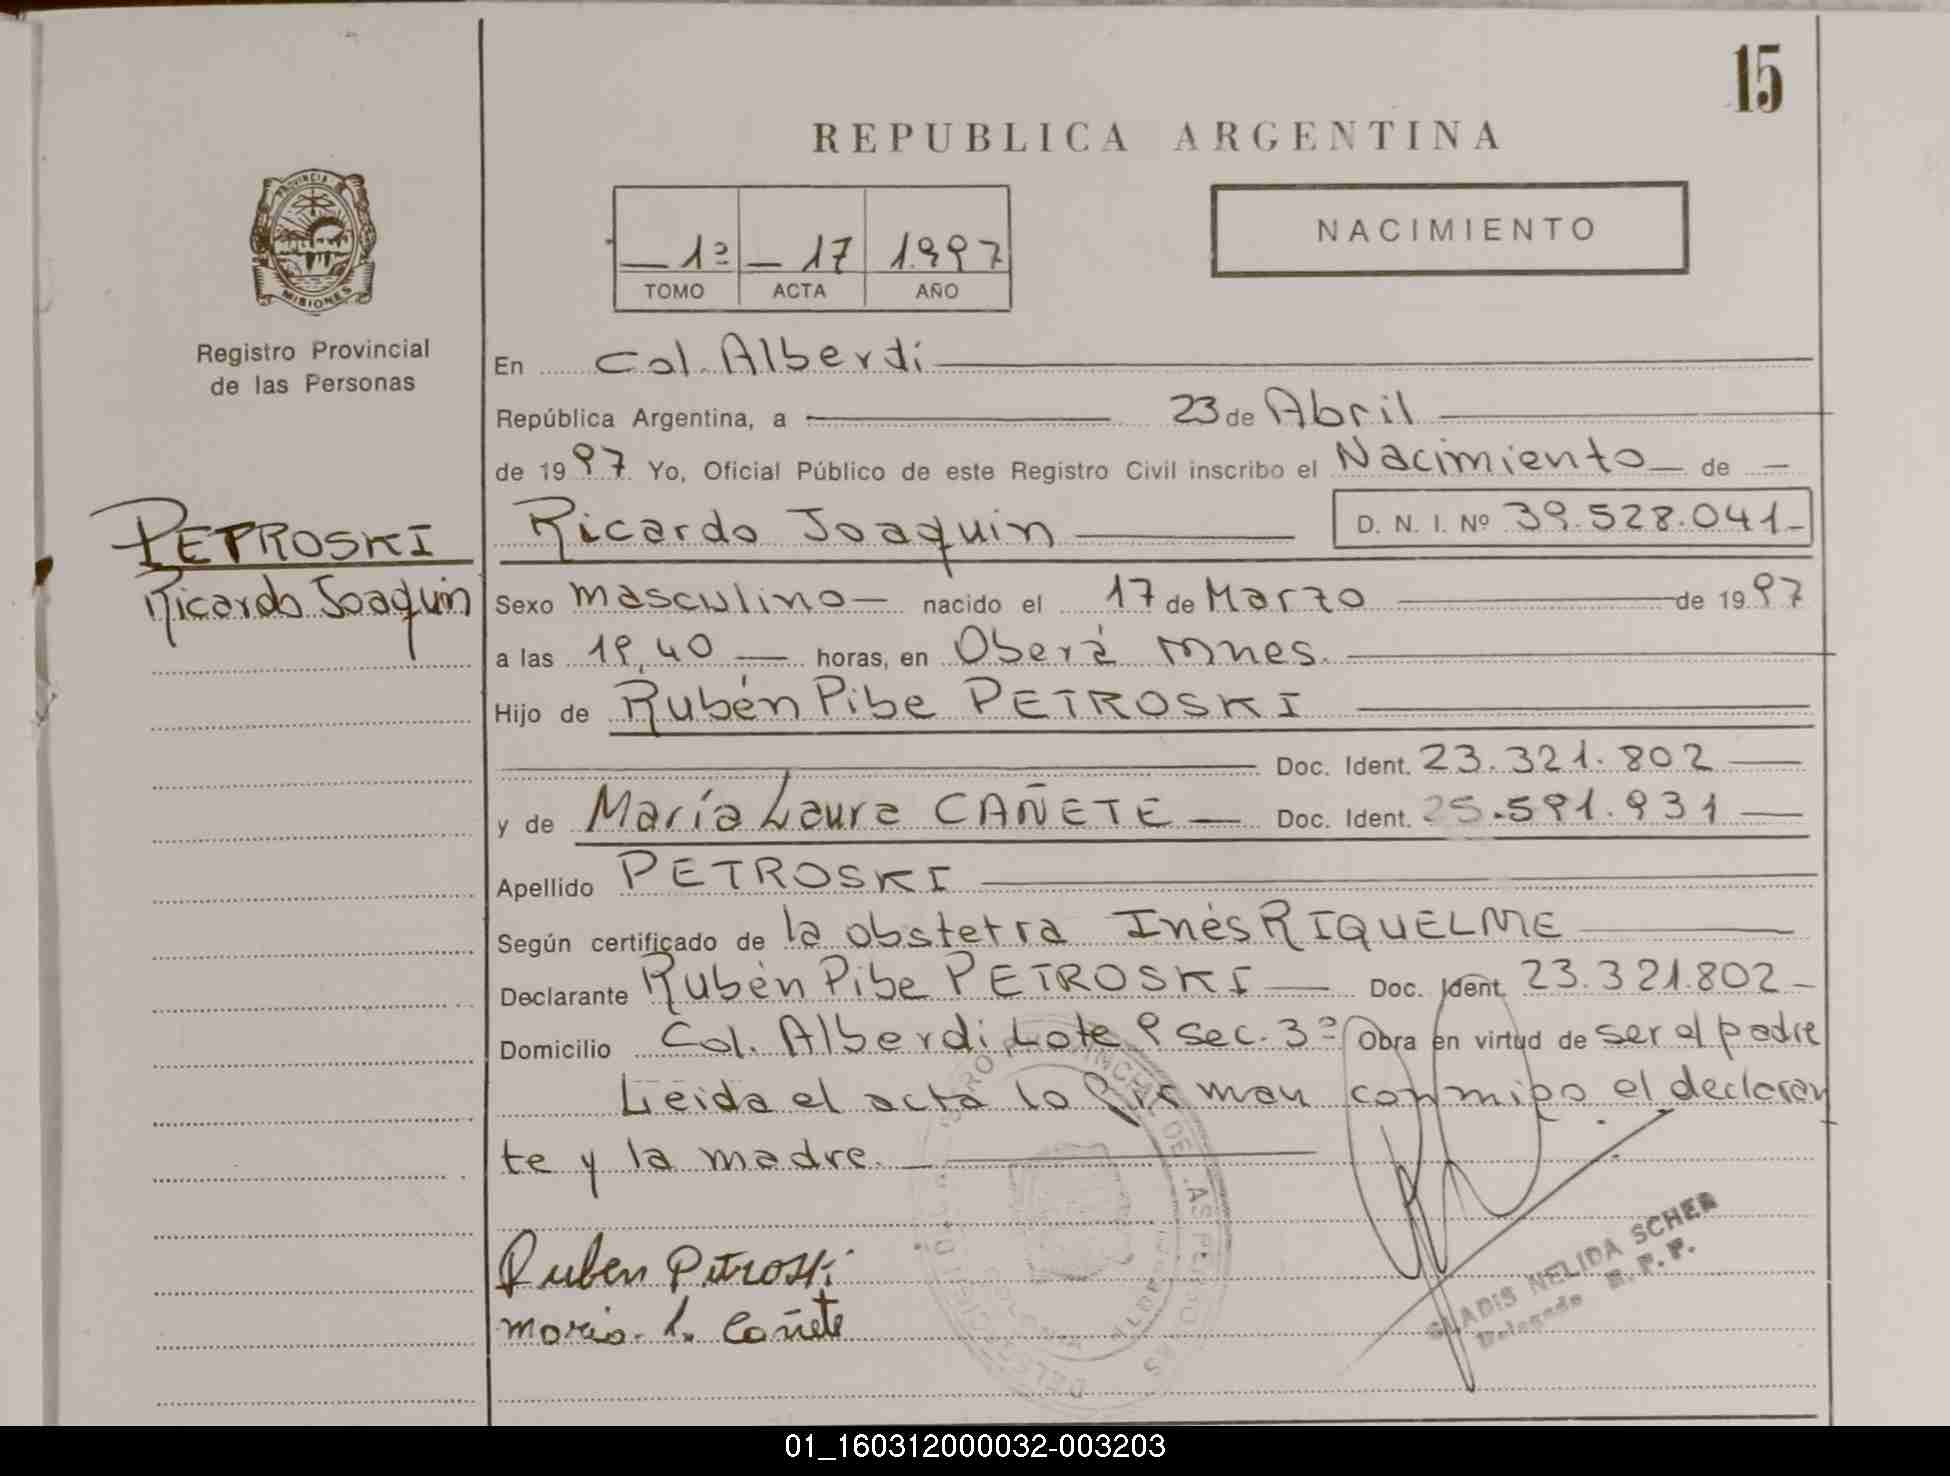 15
REPUBLICA ARGENTINA
PROVINCIA
MISIONES
Registro Provincial
de las Personas
1º 17 1.997
TOMO ACTA AÑO
NACIMIENTO
En Col. Alberdi
República Argentina, a 23 de Abril
de 1997 Yo, Oficial Público de este Registro Civil inscribo el Nacimiento de
PETROSKI
Ricardo Joaquin
Ricardo Joaquin D. N. I. Nº 39.528.041
Sexo masculino nacido el 17 de Marzo de 1997
a las 19,40 horas, en Oberá Mnes.
Hijo de Rubén Pibe PETROSKI
Doc. Ident. 23.321.802
y de María Laura CAÑETE Doc. Ident. 25.591.931
Apellido PETROSKI
Según certificado de la obstetra Inés RIQUELME
Declarante Rubén Pibe PETROSKI Doc. Ident. 23.321.802
Domicilio Col. Alberdi, Lote 9 sec. 3ª Obra en virtud de ser el padre
Leida el acta lo firman conmigo el declaran
te y la madre.
Ruben Petroski
Maria L. Cañete
GLADIS NELIDA SCHER
Delegado R. P. P.
01_160312000032-003203